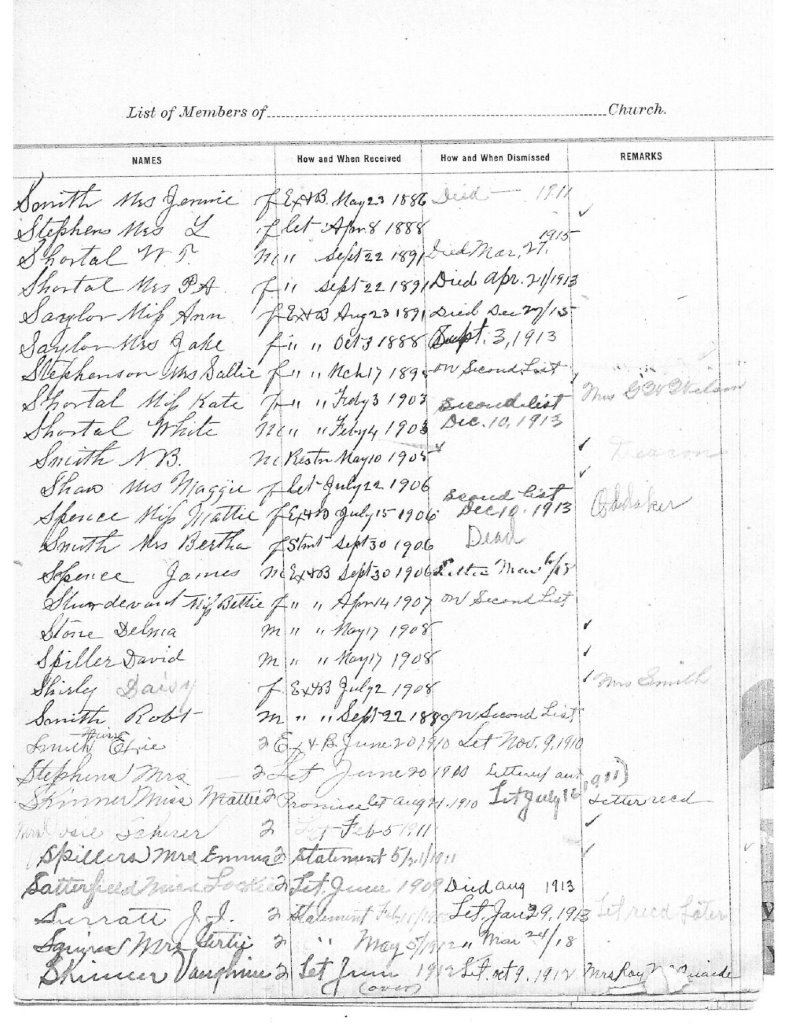 List of Members of Church.
NAMES How and When Received How and When Dismissed REMARKS
Smith Mrs Jennie f Ex & B. May 23 1886 Died — 1911
Stephens Mrs L f let Apr. 8 1888 ✓
Shortal W T. m " Sept 22 1891 Died Mar. 27. 1915
Shortal Mrs P A f " Sept 22 1891 Died Apr. 21/1913
Saylor Miss Ann f Ex & B Aug 23 1891 Died Dec 27/15
Saylor Mrs Jake f " " Oct 3 1888 Sept. 3, 1913
Stephenson Mrs Sallie f " " Mch 17 189 on Second List
Shortal Miss Kate f " " Feby 3 1903 ✓ Mrs Wilson
Shortal White m " " Feby 4 1903 Second list Dec. 10, 1913
Smith N B. m Restr May 10 1905 ✓ Deacon
Shaw Mrs Maggie f let July 22 1906 ✓
Spence Miss Mattie f Ex & B July 15 1906 Second list Dec 10. 1913
Smith Mrs Bertha f Stmt Sept 30 1906 Dead
Spence James m Ex & B Sept 30 1906 Letter Mar /18
Sturdevant Miss Bettie f " " Apr 14 1907 on Second List
Stone Delma m " " May 17 1908 ✓
Spiller David m " " May 17 1908 ✓
Shirly Daisy f Ex & B July 2 1908 ✓ Mrs Smith
Smith Robt m " " Sept 22 1889 on Second List
Smith Elsie Ex & B June 20 1910 Let Nov. 9, 1910
Stephens Mrs — Let June 20 1900 Lettered out
Skinner Miss Mattie Promise Let Aug 21, 1910 Let July 16 (1911) Letter recd
Mrs Scherer Let Feb 5 1911 ✓
Spillers Mrs Emma Statement 5/21/1911 ✓
Satterfield Miss Let. June 1909 Died Aug 1913
Surratt J. J. Statement Feb Let. Jan 29, 1913 Let recd Later
Squires Mrs Gertie " May 5/1912 " Mar 24/18
Skinner Let June 1912 Let. Oct 9, 1912 Mrs Roy
(over)